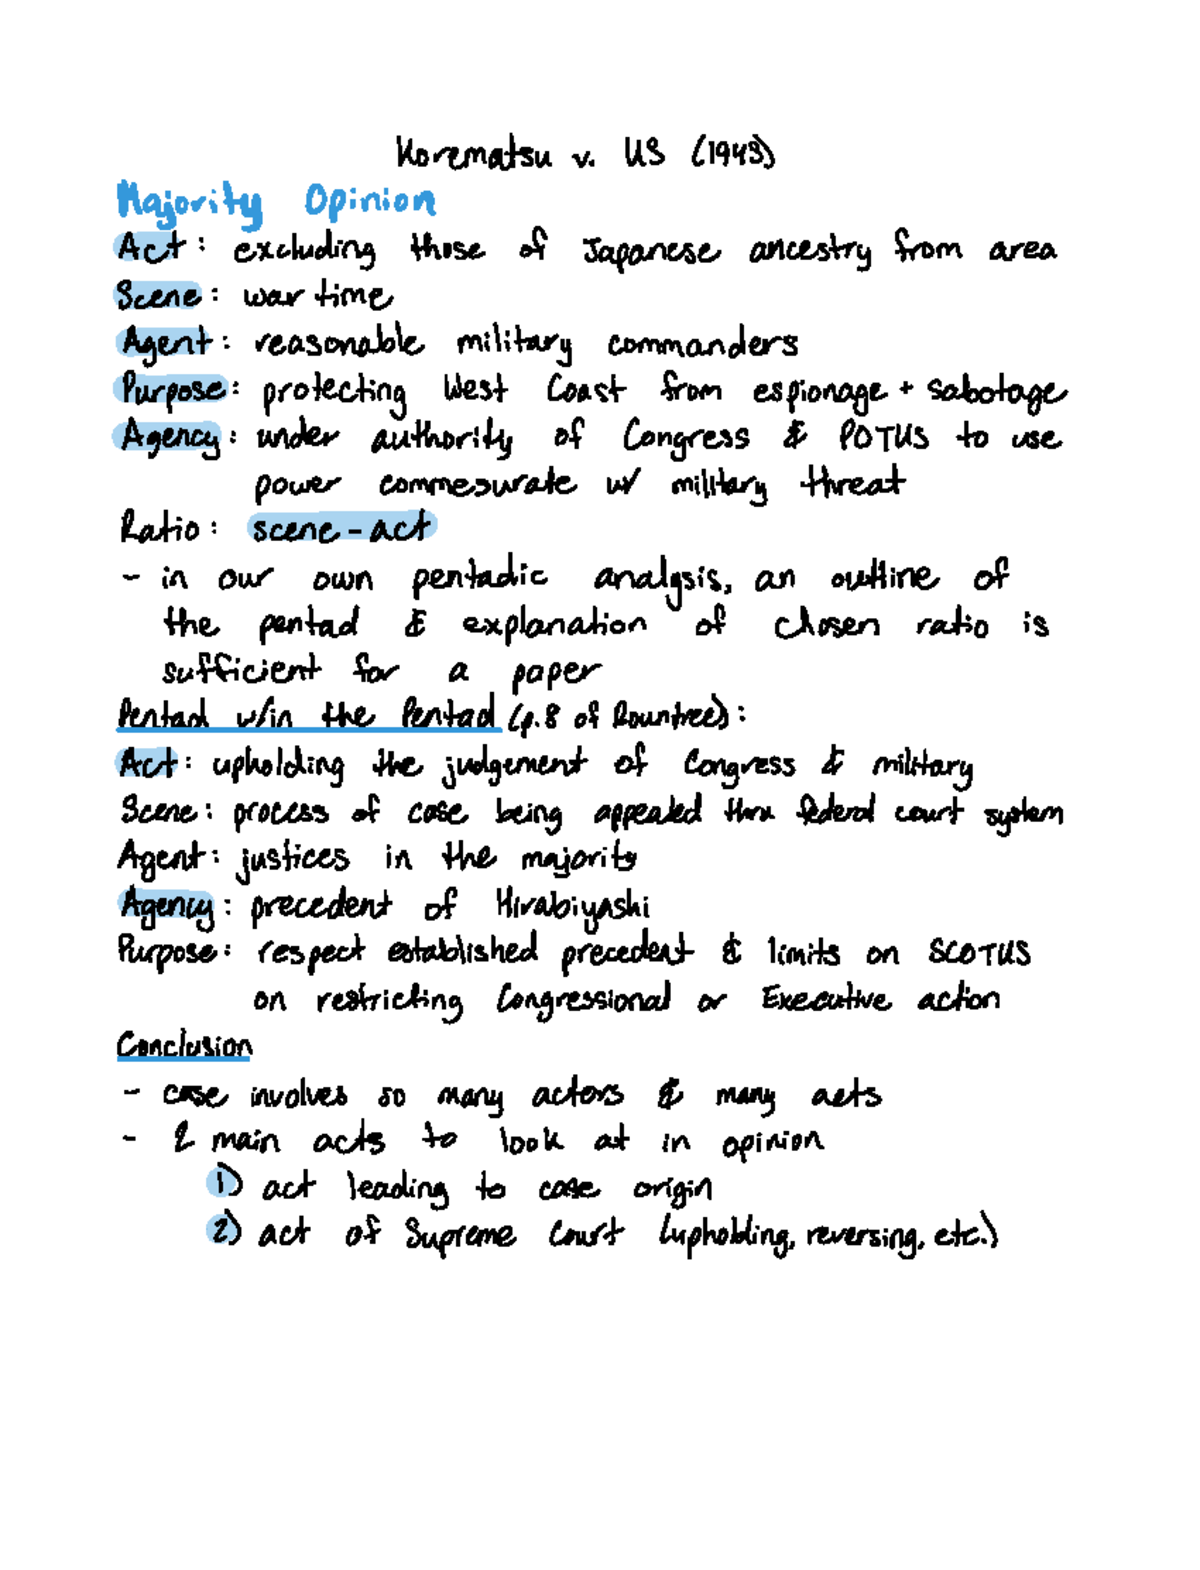 Korematsu v. US (1943)
Majority Opinion
Act: excluding those of Japanese ancestry from area
Scene: war time
Agent: reasonable military commanders
Purpose: protecting West Coast from espionage + sabotage
Agency: under authority of Congress & POTUS to use
power commesurate w/ military threat
Ratio: scene-act
- in our own pentadic analysis, an outline of
the pentad & explanation of chosen ratio is
sufficient for a paper
Pentad w/in the Pentad (p.8 of Rountree):
Act: upholding the judgement of Congress & military
Scene: process of case being appealed thru federal court system
Agent: justices in the majority
Agency: precedent of Hirabiyashi
Purpose: respect established precedent & limits on SCOTUS
on restricting Congressional or Executive action
Conclusion
- case involves so many actors & many acts
- 2 main acts to look at in opinion
1) act leading to case origin
2) act of Supreme Court (upholding, reversing, etc.)